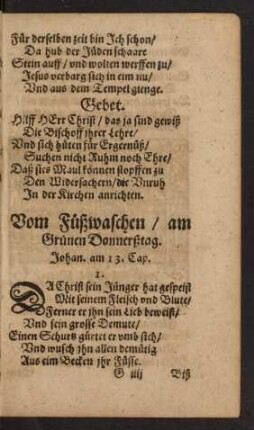 Für derselben zeit bin Ich schon/
Da hub der Jüden schaare
Stein auff/ vnd wolten werffen zu/
Jesus verbarg sich in eim nu/
Vnd aus dem Tempel gienge.
Gebet.
Hilff HErr Christ/ das ja sind gewiß
Die Bischoff ihrer Lehre/
Vnd sich hüten für Ergernüß/
Suchen nicht Ruhm noch Ehre/
Daß sies Maul können stopffen zu
Den Widersachern/ die Vnruh
In der Kirchen anrichten.
Vom Füßwaschen/ am
Grünen Donnerßtag.
Johan. am 13. Cap.
1.
DA Christ sein Jünger hat gespeist
Mit seinem Fleisch vnd Blute/
Ferner er jhn sein Lieb beweist/
Vnd sein grosse Demutt/
Einen Schurtz gürtet er vmb sich/
Vnd wusch jhn allen demütig
Aus eim Becken jhr Füsse.
G iiij Biß